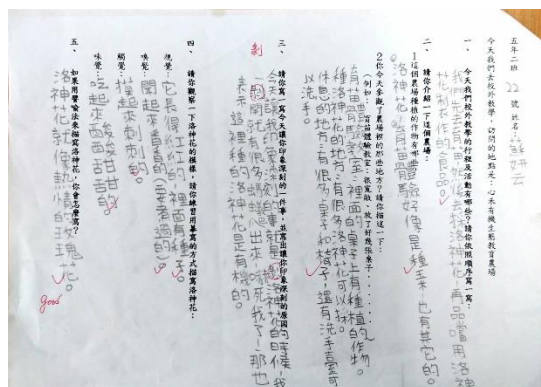 五年二班 22 號 姓名：蘇妍云
今天我們去校外教學，訪問的地點是：心禾有機生態教育農場
一、今天我們校外教學的行程及活動有哪些？請你依照順序寫一寫：
我們先去育苗，然後去採洛神花，再品嘗用洛神
花制衣作的食品。
二、請你介紹一下這個農場：
1這個農場種植的作物有哪
洛神花，育苗體驗好像是種玉米，也有其它的。
2你今天參觀了農場裡的那些地方？請你描寫一下：
（例如：育苗體驗教室：很寬敞、放了好幾張桌子……
育苗體驗教室：裡面的桌子上有種植的作物。
種洛神花的地方：有很多洛神花可以採。
休息的地方：有很多桌子和椅子，還有洗手臺可
以洗手。
三、請你寫一寫今天讓你印象深刻的一件事，並寫出讓你印象深刻的原因：
今天讓我印象深刻的事就是剝洛神花的時候，我
剝
一剝開就有很多螞蟻出來，嚇死我了！那也
表示這裡種的洛神花是有機的。
四、請你觀察一下洛神花的模樣，請你練習用摹寫的方式描寫洛神花：
視覺：它長得紅紅的，裡面有種子。
嗅覺：聞起來香香的（煮過的）。
觸覺：摸起來刺刺的。
味覺：吃起來酸酸甘甘的
五、如果用譬喻法來描寫洛神花，你會怎麼寫？
洛神花就像熱情的玫瑰花。
Good